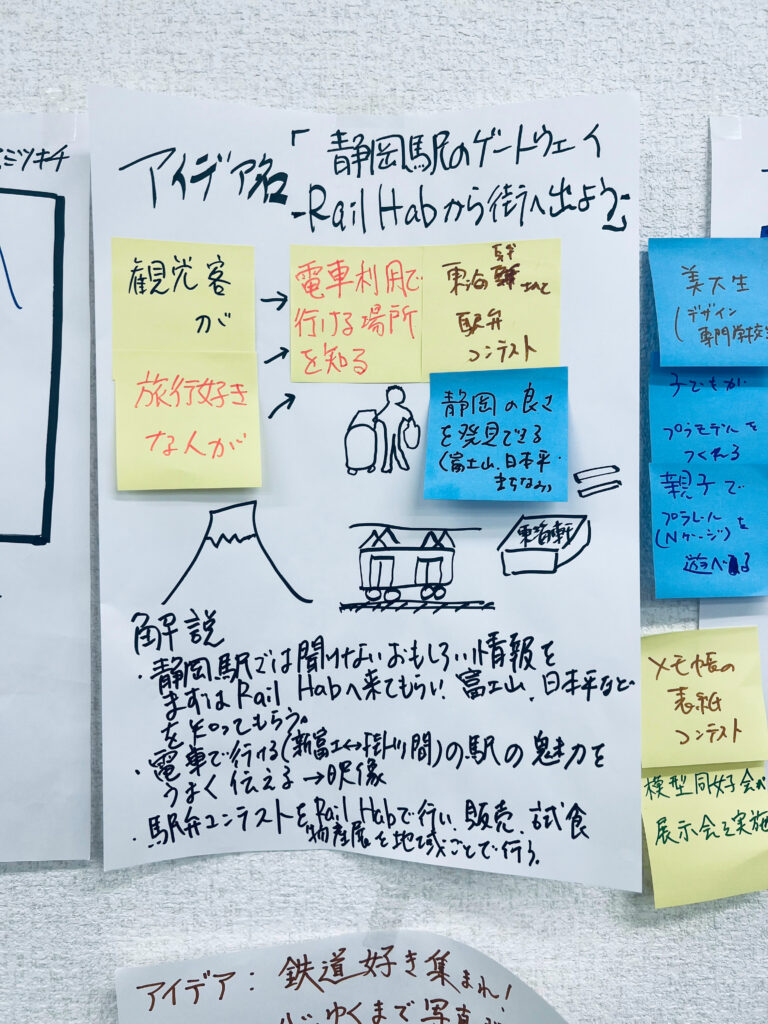 ミツキチ
アイデア名「静岡駅のゲートウェイ
-Rail Habから街へ出よう-」
観光客
が
旅行好き
な人が
電車利用で
行ける場所
を知る
東海軒
駅弁
コンテスト
静岡の良さ
を発見できる
(富士山、日本平、
まちなみ)
東海軒
解説
・静岡駅では聞けないおもしろい情報を
まずはRail Habへ来てもらい、富士山、日本平など
を知ってもらう。
・電車で行ける(新富士↔掛川間)の駅の魅力を
うまく伝える→映像
・駅弁コンテストをRail Habで行い、販売、試食
物産展を地域ごとで行う。
美大生
(デザイン
専門学校
子どもが
プラモデルを
つくれる
親子で
プラレール
(Nゲージ)を
遊べる
メモ帳の
表紙
コンテスト
模型同好会が
展示会を実施
アイデア:鉄道好き集まれ!
心ゆくまで写真